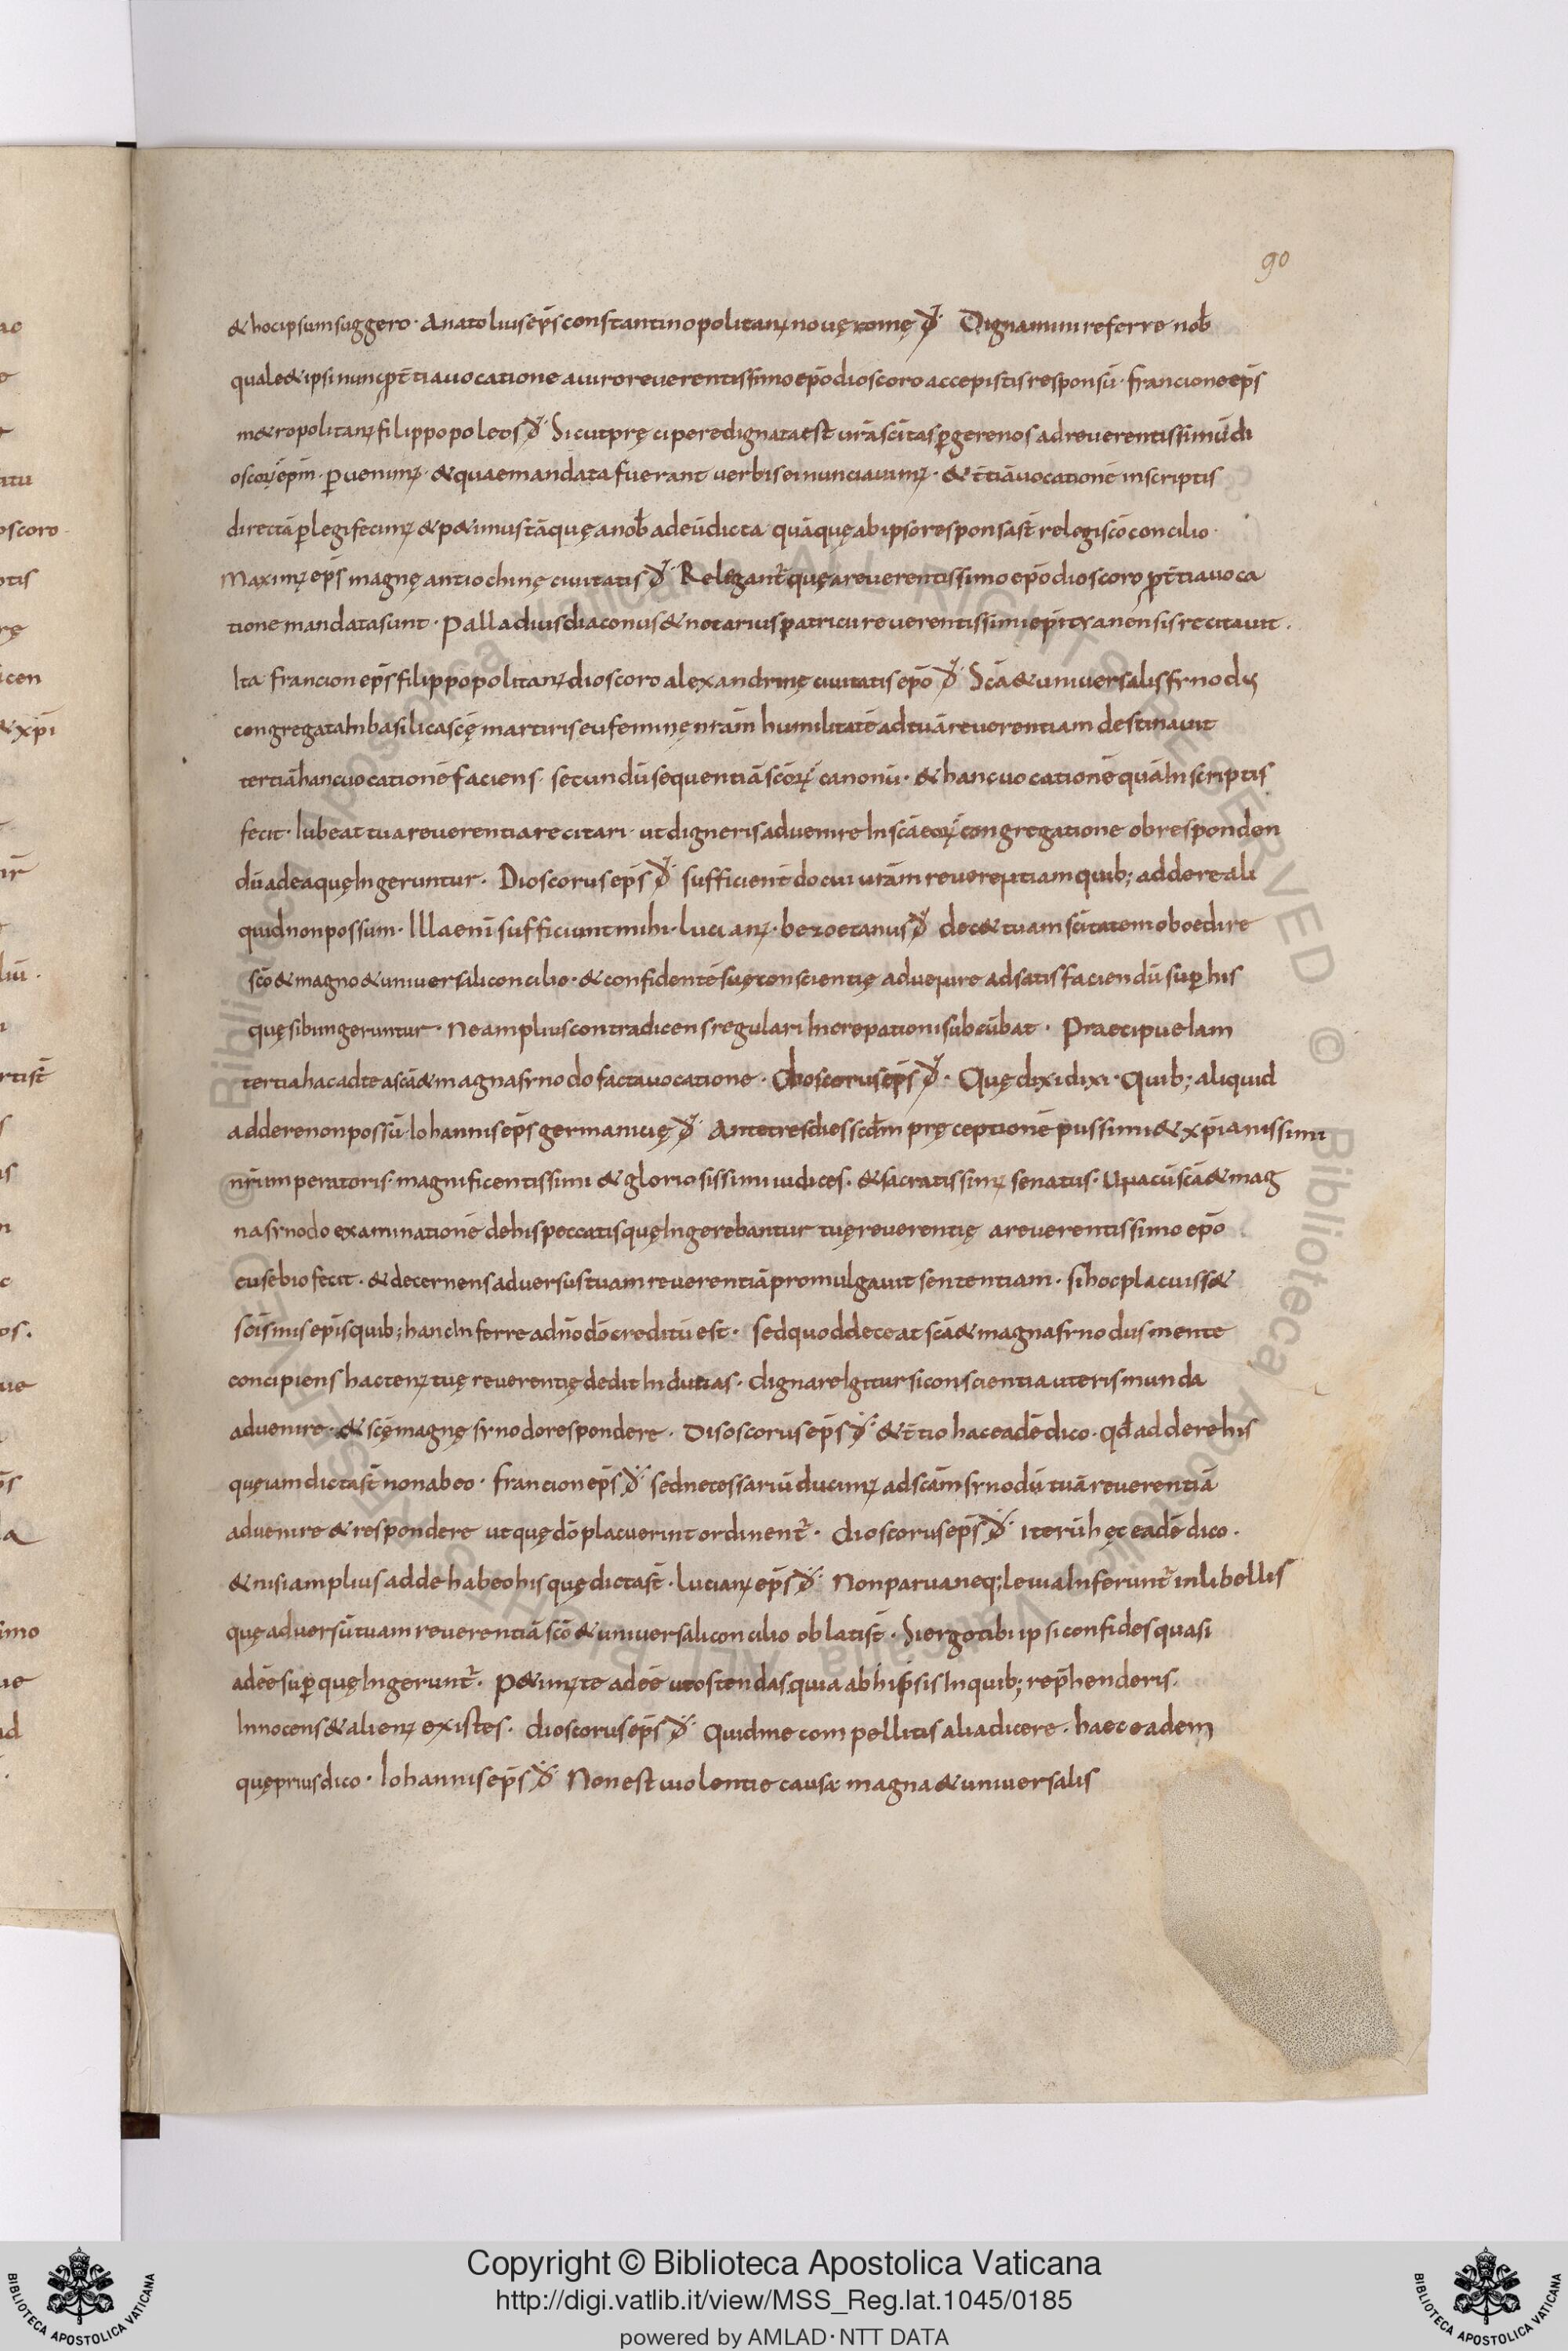 90
& hoc ipsum suggero · Anatolius ep̄s constantinopolitanꝰ nouę romę đ Dignamini referre nob̄
quale & ipsi nunc ꝓ t̄tia uocatione a uiro reuerentissimo ep̄o dioscoro accepistis responsū · francione ep̄s
m&ropolitanꝰ filippopoleos đ Sicut pręcipere dignata est ur̄a sc̄itas ꝑgere nos ad reuerentissimū di
oscorū ep̄m · ꝑuenimꝰ · & quae mandata fuerant uerbis ei nunciauimꝰ · & t̄tiā uocationē in scriptis
directā ꝑlegi fecimꝰ & p&imus tā quę a nob̄ ad eū dicta quā quę ab ipso responsa st̄ relegi sc̄o concilio ·
Maximꝰ ep̄s magnę antiochinę ciuitatis đ Relegant̄ quę a reuerentissimo ep̄o dioscoro ꝓ t̄tia uoca
tione mandata sunt · Palladius diaconus & notarius patricii reuerentissimi ep̄i txanensis recitauit ·
Ita francion ep̄s filippopolitanꝰ dioscoro alexandrinę ciuitatis ep̄o đ Sc̄a & uniuersalis synodꝰ
congregata In basilica sc̄ę martiris eufeminę nr̄am humilitatē ad tuā reuerentiam destinauit
tertiā hanc uocationē faciens · secundū sequentiā sc̄orū canonū · & hanc uocationē quā In scriptis
fecit · Iubeat tua reuerentia recitari · ut digneris aduenire In sc̄a eorū congregatione ob responden
dū ad ea quę Ingeruntur · Dioscorus ep̄s đ sufficient̄ docui ur̄am reuerentiam quib; addere ali
quid non possum · Illa eni sufficiunt mihi · lucianꝰ · bezoetanus đ dec& tuam sc̄itatem oboedire
sc̄o & magno & uniuersali concilio · & confidentē suę conscientię aduenire ad satisfaciendū suꝑ his
quę sibi ingeruntur · Ne amplius contradicens regulari Increpationi subcūbat · Praecipue Iam
tertia hac ad te a sc̄a & magna synodo facta uocatione · Dioscorus ep̄s đ · Quę dixi dixi · Quib; aliquid
addere non possū Iohannis ep̄s germanicię đ Ante tres dies scd̄m pręceptionē piissimi & xp̄ianissimi
nr̄i imperatoris · magnificentissimi & gloriosissimi iudices · & sacratissimꝰ senatus · Una cū sc̄a & mag
na synodo examinationē de his peccatis quę Ingerebantur tuę reuerentię a reuerentissimo ep̄o
eusebio fecit · & decernens aduersus tuam reuerentiā promulgauit sententiam · si hoc placuiss&
sc̄isimis ep̄is quib; hanc In ferre ad n̄o dō creditū est · Sed quod deceat sc̄a & magna synodus mente
concipiens hactenꝰ tuę reuerentię dedit Inducias · dignare Igitur si conscientia uteris munda
aduenire · & sc̄ę magnę synodo respondere · Disoscorus ep̄s đ & t̄tio hac eadē dico · qd̄ addere his
quę iam dicta st̄ non abeo · francion ep̄s đ sed necessariū ducimꝰ ad sc̄am synodū tuā reuerentiā
aduenire & respondere ut quę dō placuerint ordinent̄ · dioscorus ep̄s đ · Iterū hęc eadē dico ·
& nisi amplius adde habeo his quę dicta st̄ · lucianꝰ ep̄s đ Non parua neq; leuia Inferunt̄ in libellis
quę aduersū tuam reuerentiā sc̄o & uniuersali concilio oblati st̄ · Si ergo tibi ipsi confides quasi
ad ēe suꝑ quę Ingerunt̄ · p&imꝰ te adēe ut ostendas quia ab hipsis In quib; rep̄henderis ·
Innocens & alienꝰ existes · dioscorus ep̄s đ quid me compellitis alia dicere · haec eadem
quę prius dico · Iohannis ep̄s đ Non est uiolentie causa magna & uniuersalis
Copyright © Biblioteca Apostolica Vaticana
http://digi.vatlib.it/view/MSS_Reg.lat.1045/0185
powered by AMLAD·NTT DATA